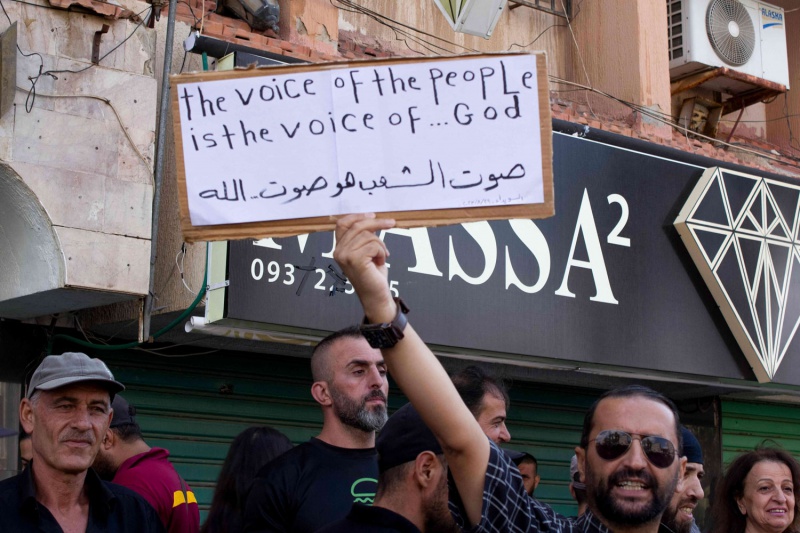 the voice of the people
is the voice of ... God
صوت الشعب هو صوت .. الله
MASSA²
093
ALASKA